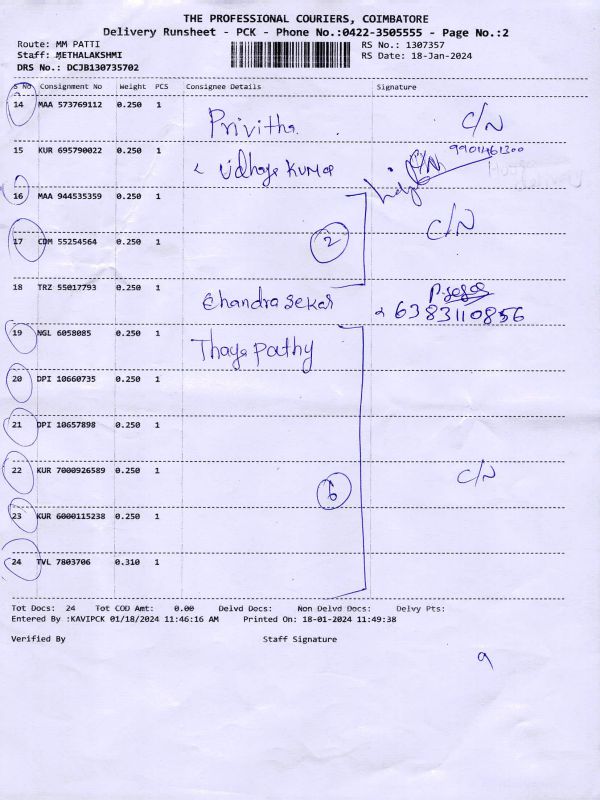 THE PROFESSIONAL COURIERS, COIMBATORE
Delivery Runsheet - PCK - Phone No.:0422-3505555 - Page No.:2
Route: MM PATTI RS No.: 1307357
Staff: METHALAKSHMI RS Date: 18-Jan-2024
DRS No.: DCJB130735702
S No Consignment No Weight PCS Consignee Details Signature
14 MAA 573769112 0.250 1 Privitha. C/N
15 KUR 695790022 0.250 1 Udhaya Kumar
16 MAA 944535359 0.250 1 C/N
17 CDM 55254564 0.250 1 2
18 TRZ 55017793 0.250 1 Chandra sekar 6383110856
19 NGL 6058085 0.250 1 Thaya pathy
20 DPI 10660735 0.250 1
21 DPI 10657898 0.250 1
22 KUR 7000926589 0.250 1 6 C/N
23 KUR 6000115238 0.250 1
24 TVL 7803706 0.310 1
Tot Docs: 24 Tot COD Amt: 0.00 Delvd Docs: Non Delvd Docs: Delvy Pts:
Entered By :KAVIPCK 01/18/2024 11:46:16 AM Printed On: 18-01-2024 11:49:38
Verified By Staff Signature
9